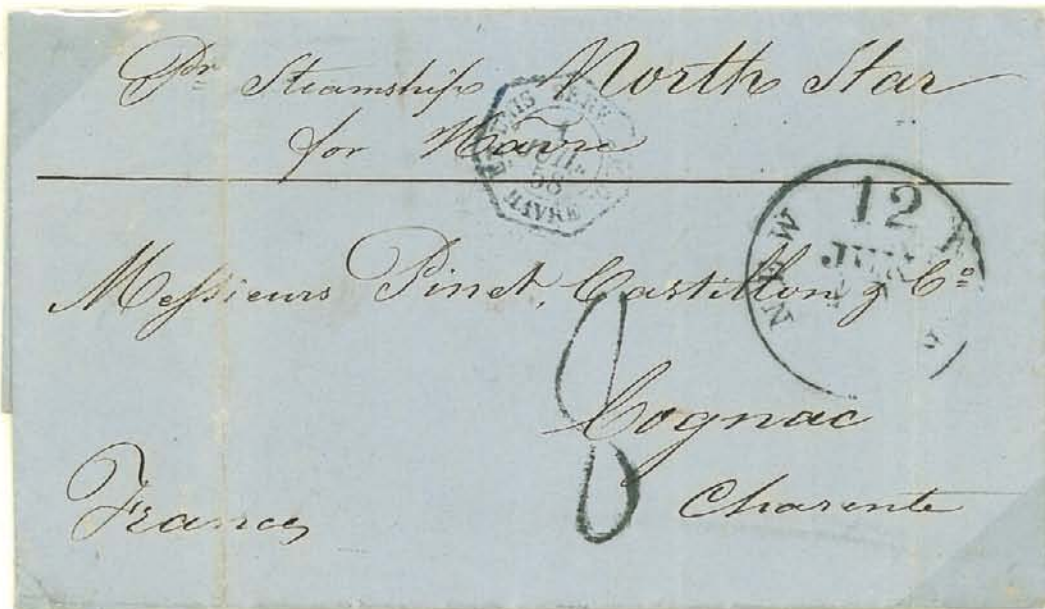 Pr Steamship North Star
for Havre
1
JUIL.
58
HAVRE
12
NEW
JUN
Messieurs Pinet, Castillon & Co
8
Cognac
Charente
France